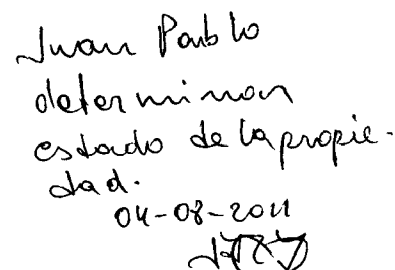 Juan Pablo
determinar
estado de la propie-
dad.
04-08-2011